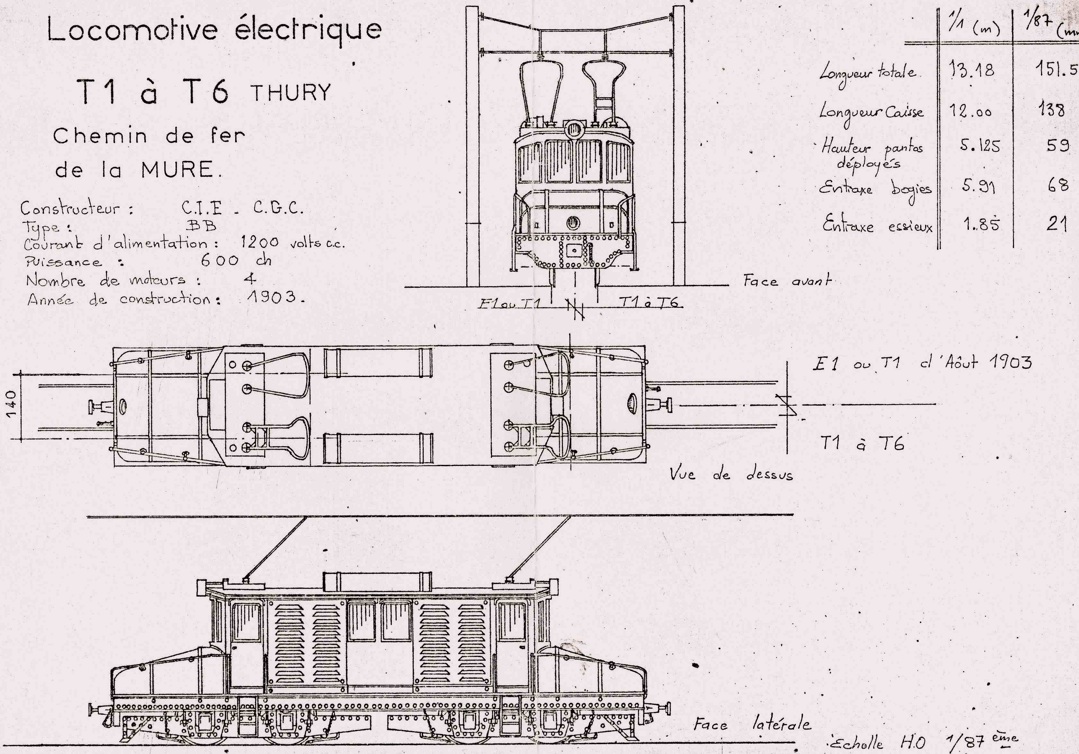 Locomotive électrique
T1 à T6 THURY
Chemin de fer
de la MURE.
Constructeur : C.I.E - C.G.C.
Type : BB
Courant d'alimentation : 1200 volts c.c.
Puissance : 600 ch
Nombre de moteurs : 4
Année de construction : 1903.
1/1 (m) 1/87
Longueur totale. 13.18 151.5
Longueur Caisse 12.00 138
Hauteur pantos 5.125 59
déployés
Entraxe bogies 5.91 68
Entraxe essieux 1.85 21
Face avant
E1 ou T1 T1 à T6
E1 ou T1 d'Aôut 1903
140
T1 à T6
Vue de dessus
Face latérale
Echolle H.O 1/87 ème